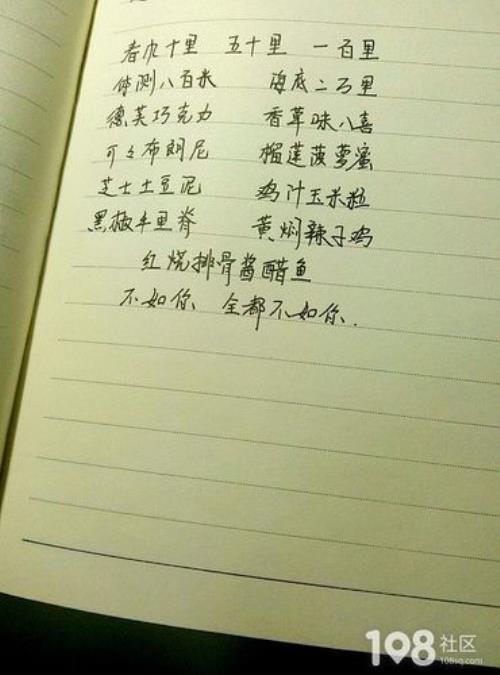 春巾十里 五十里 一百里
体测八百米 海底二万里
德芙巧克力 香草味八喜
可可布朗尼 榴莲菠萝蜜
芝士土豆泥 鸡汁玉米粒
黑椒牛里脊 黄焖辣子鸡
红烧排骨酱醋鱼
不如你 全都不如你.
108社区
108sq.com